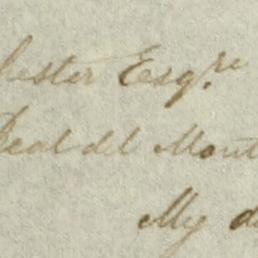 hester Esq.re
Real del Mont
My d